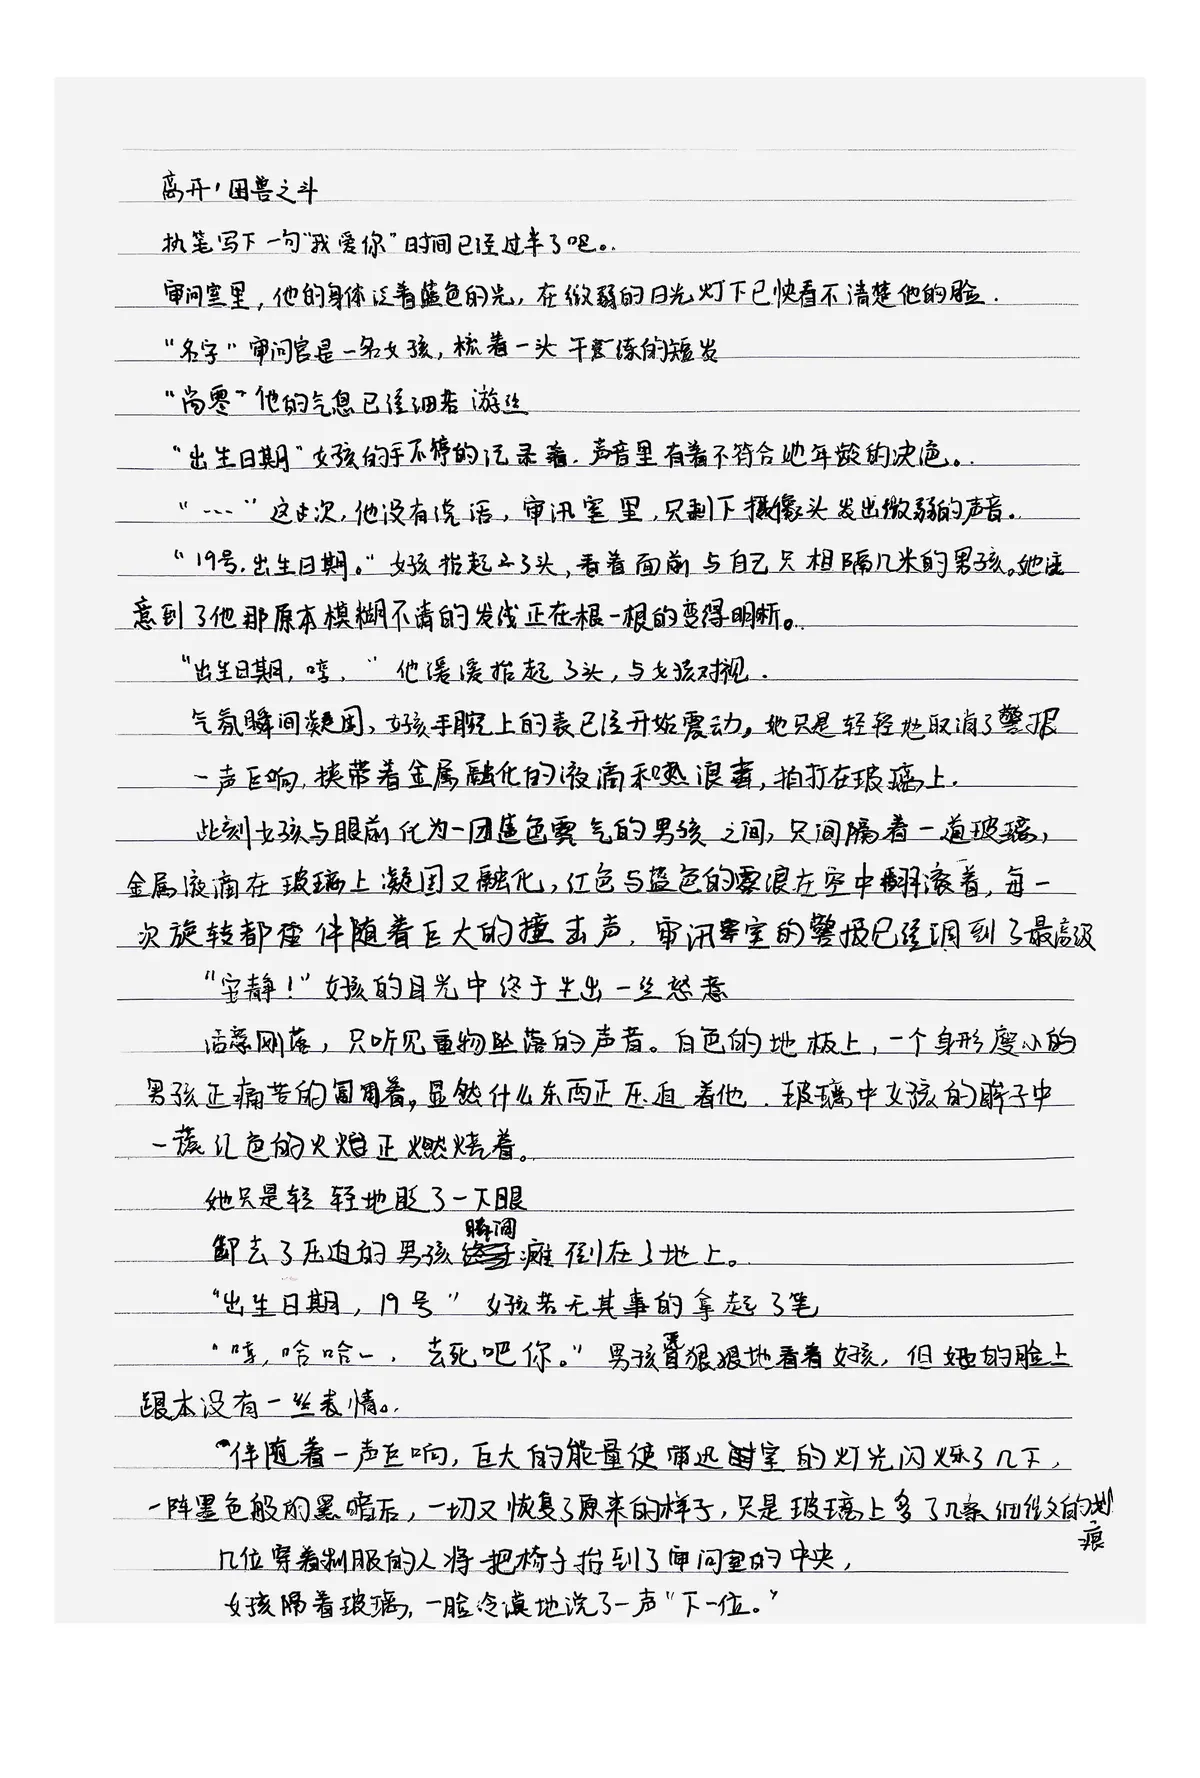 离开,困兽之斗
执笔写下一句“我爱你”时间已经过半了吧。
审问室里,他的身体泛着蓝色的光,在微弱的日光灯下已快看不清楚他的脸.
“名字”审问官是一名女孩,梳着一头干练的短发
“尚零”他的气息已经细若游丝
“出生日期”女孩的手不停的记录着.声音里有着不符合她年龄的决绝。
“...”这次,他没有说话,审讯室里,只剩下摄像头发出微弱的声音。
“19号.出生日期。”女孩抬起了头,看着面前与自己只相隔几米的男孩。她注
意到了他那原本模糊不清的发线正在根一根的变得明晰。
“出生日期,哼.”他缓缓抬起了头,与女孩对视.
气氛瞬间凝固,女孩手腕上的表已经开始震动,她只是轻轻地取消了警报
一声巨响,挟带着金属融化的液滴和热浪毒,拍打在玻璃上.
此刻女孩与眼前化为一团蓝色雾气的男孩之间,只间隔着一道玻璃,
金属液滴在玻璃上凝固又融化,红色与蓝色的雾浪在空中翻滚着,每一
次旋转都伴随着巨大的撞击声.审讯室的警报已经调到了最高级
“安静!”女孩的目光中终于生出一丝怒意
话音刚落,只听见重物坠落的声音。白色的地板上,一个身形瘦小的
男孩正痛苦的匍匐着,显然什么东西正压迫着他.玻璃中女孩的眸子中
一簇红色的火焰正燃烧着。
她只是轻轻地眨了一下眼
卸去了压迫的男孩瞬间瘫倒在了地上。
“出生日期,19号”女孩若无其事的拿起了笔
“哼,哈哈一.去死吧你。”男孩恶狠狠地看着女孩,但她的脸上
跟本没有一丝表情。
“伴随着一声巨响,巨大的能量使审迅室的灯光闪烁了几下,
一阵墨色般的黑暗后,一切又恢复了原来的样子,只是玻璃上多了几条细纹的划痕
几位穿着制服的人将把椅子抬到了审问室的中央,
女孩隔着玻璃,一脸冷漠地说了一声“下一位。”